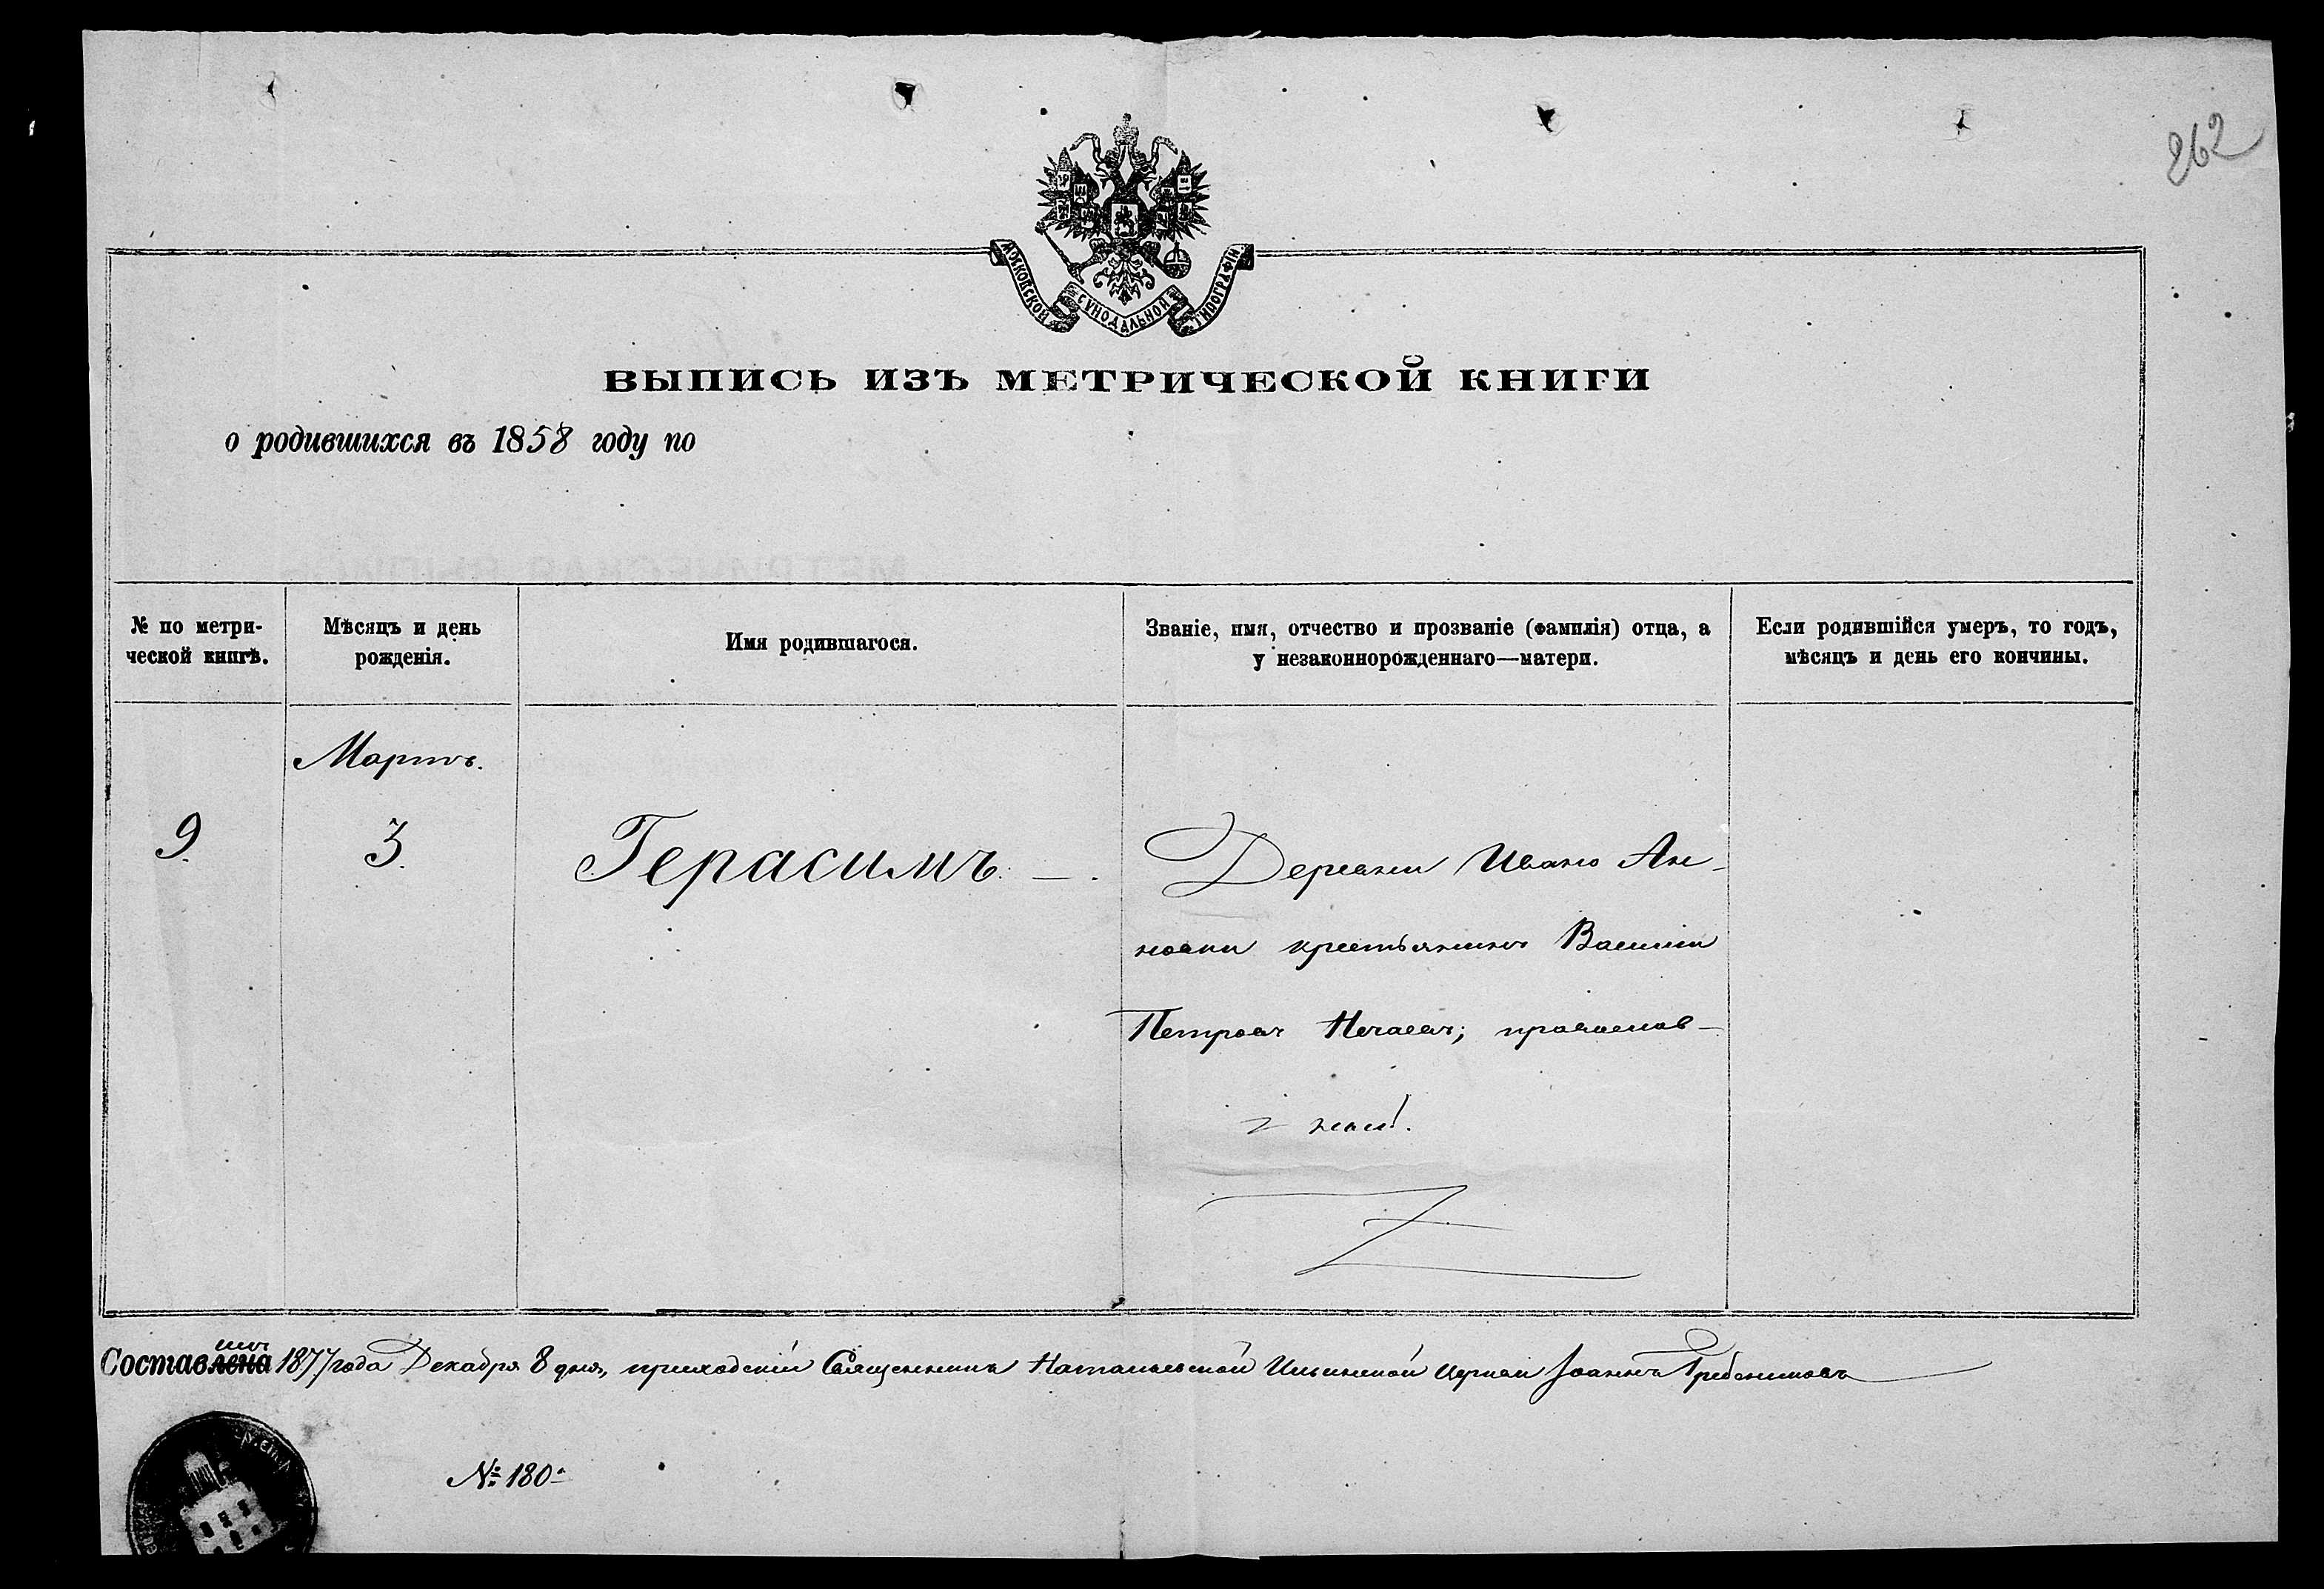 262
МОСКОВСКОЙ СУНОДАЛЬНОЙ ТИПОГРАФІИ
ВЫПИСЬ ИЗЪ МЕТРИЧЕСКОЙ КНИГИ
о родившихся въ 1858 году по
№ по метри-
ческой книгѣ.
Мѣсяцъ и день
рожденія.
Имя родившагося.
Званіе, имя, отчество и прозваніе (фамилія) отца, а
у незаконнорожденнаго—матери.
Если родившійся умеръ, то годъ,
мѣсяцъ и день его кончины.
Мартъ.
9.
3.
Герасимъ.
Деревни Ивано Ан-
новки крестьянинъ Василій
Петровъ Нечаевъ; православ-
Составилъ 1877 года Декабря 8 дня, приходскій Священникъ Ильинской церкви Іоаннъ Гребенниковъ
№ 180.